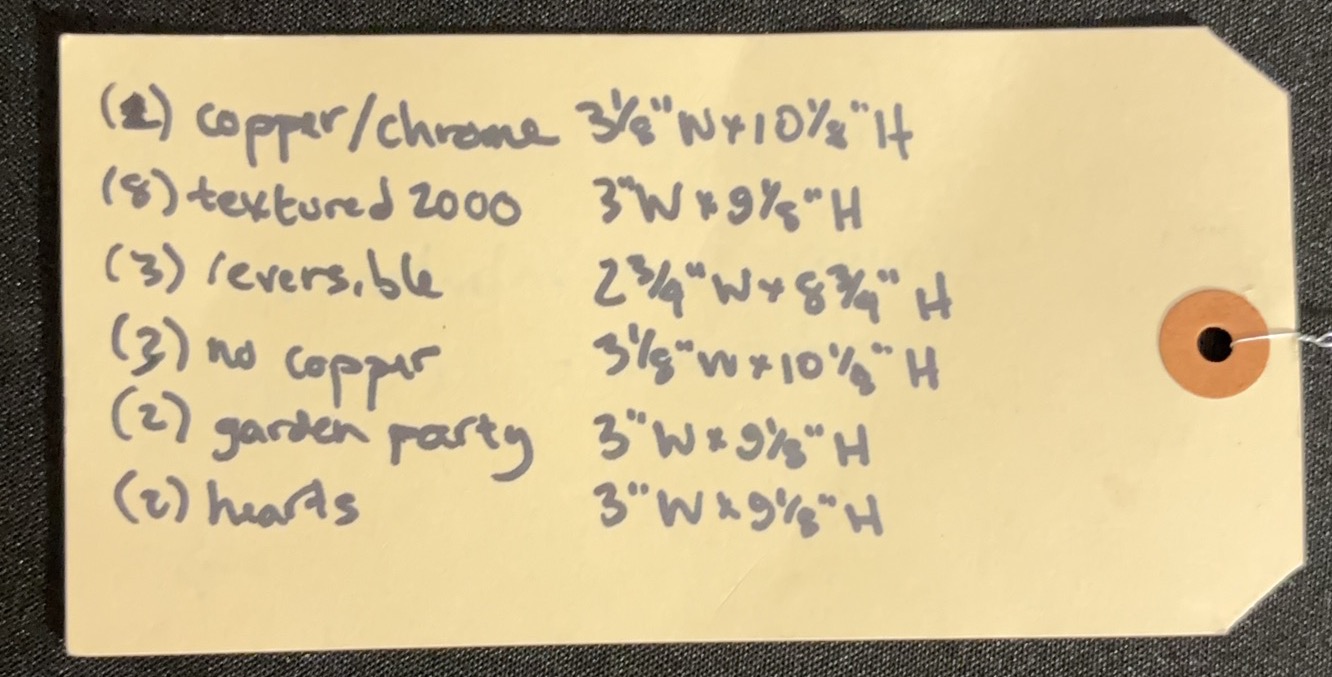 (2) copper/chrome 3⅛"W x 10⅛"H
(8) textured 2000 3"W x 9⅛"H
(3) reversible 2¾"W x 8¾"H
(3) no copper 3⅛"W x 10⅛"H
(2) garden party 3"W x 9⅛"H
(2) hearts 3"W x 9⅛"H